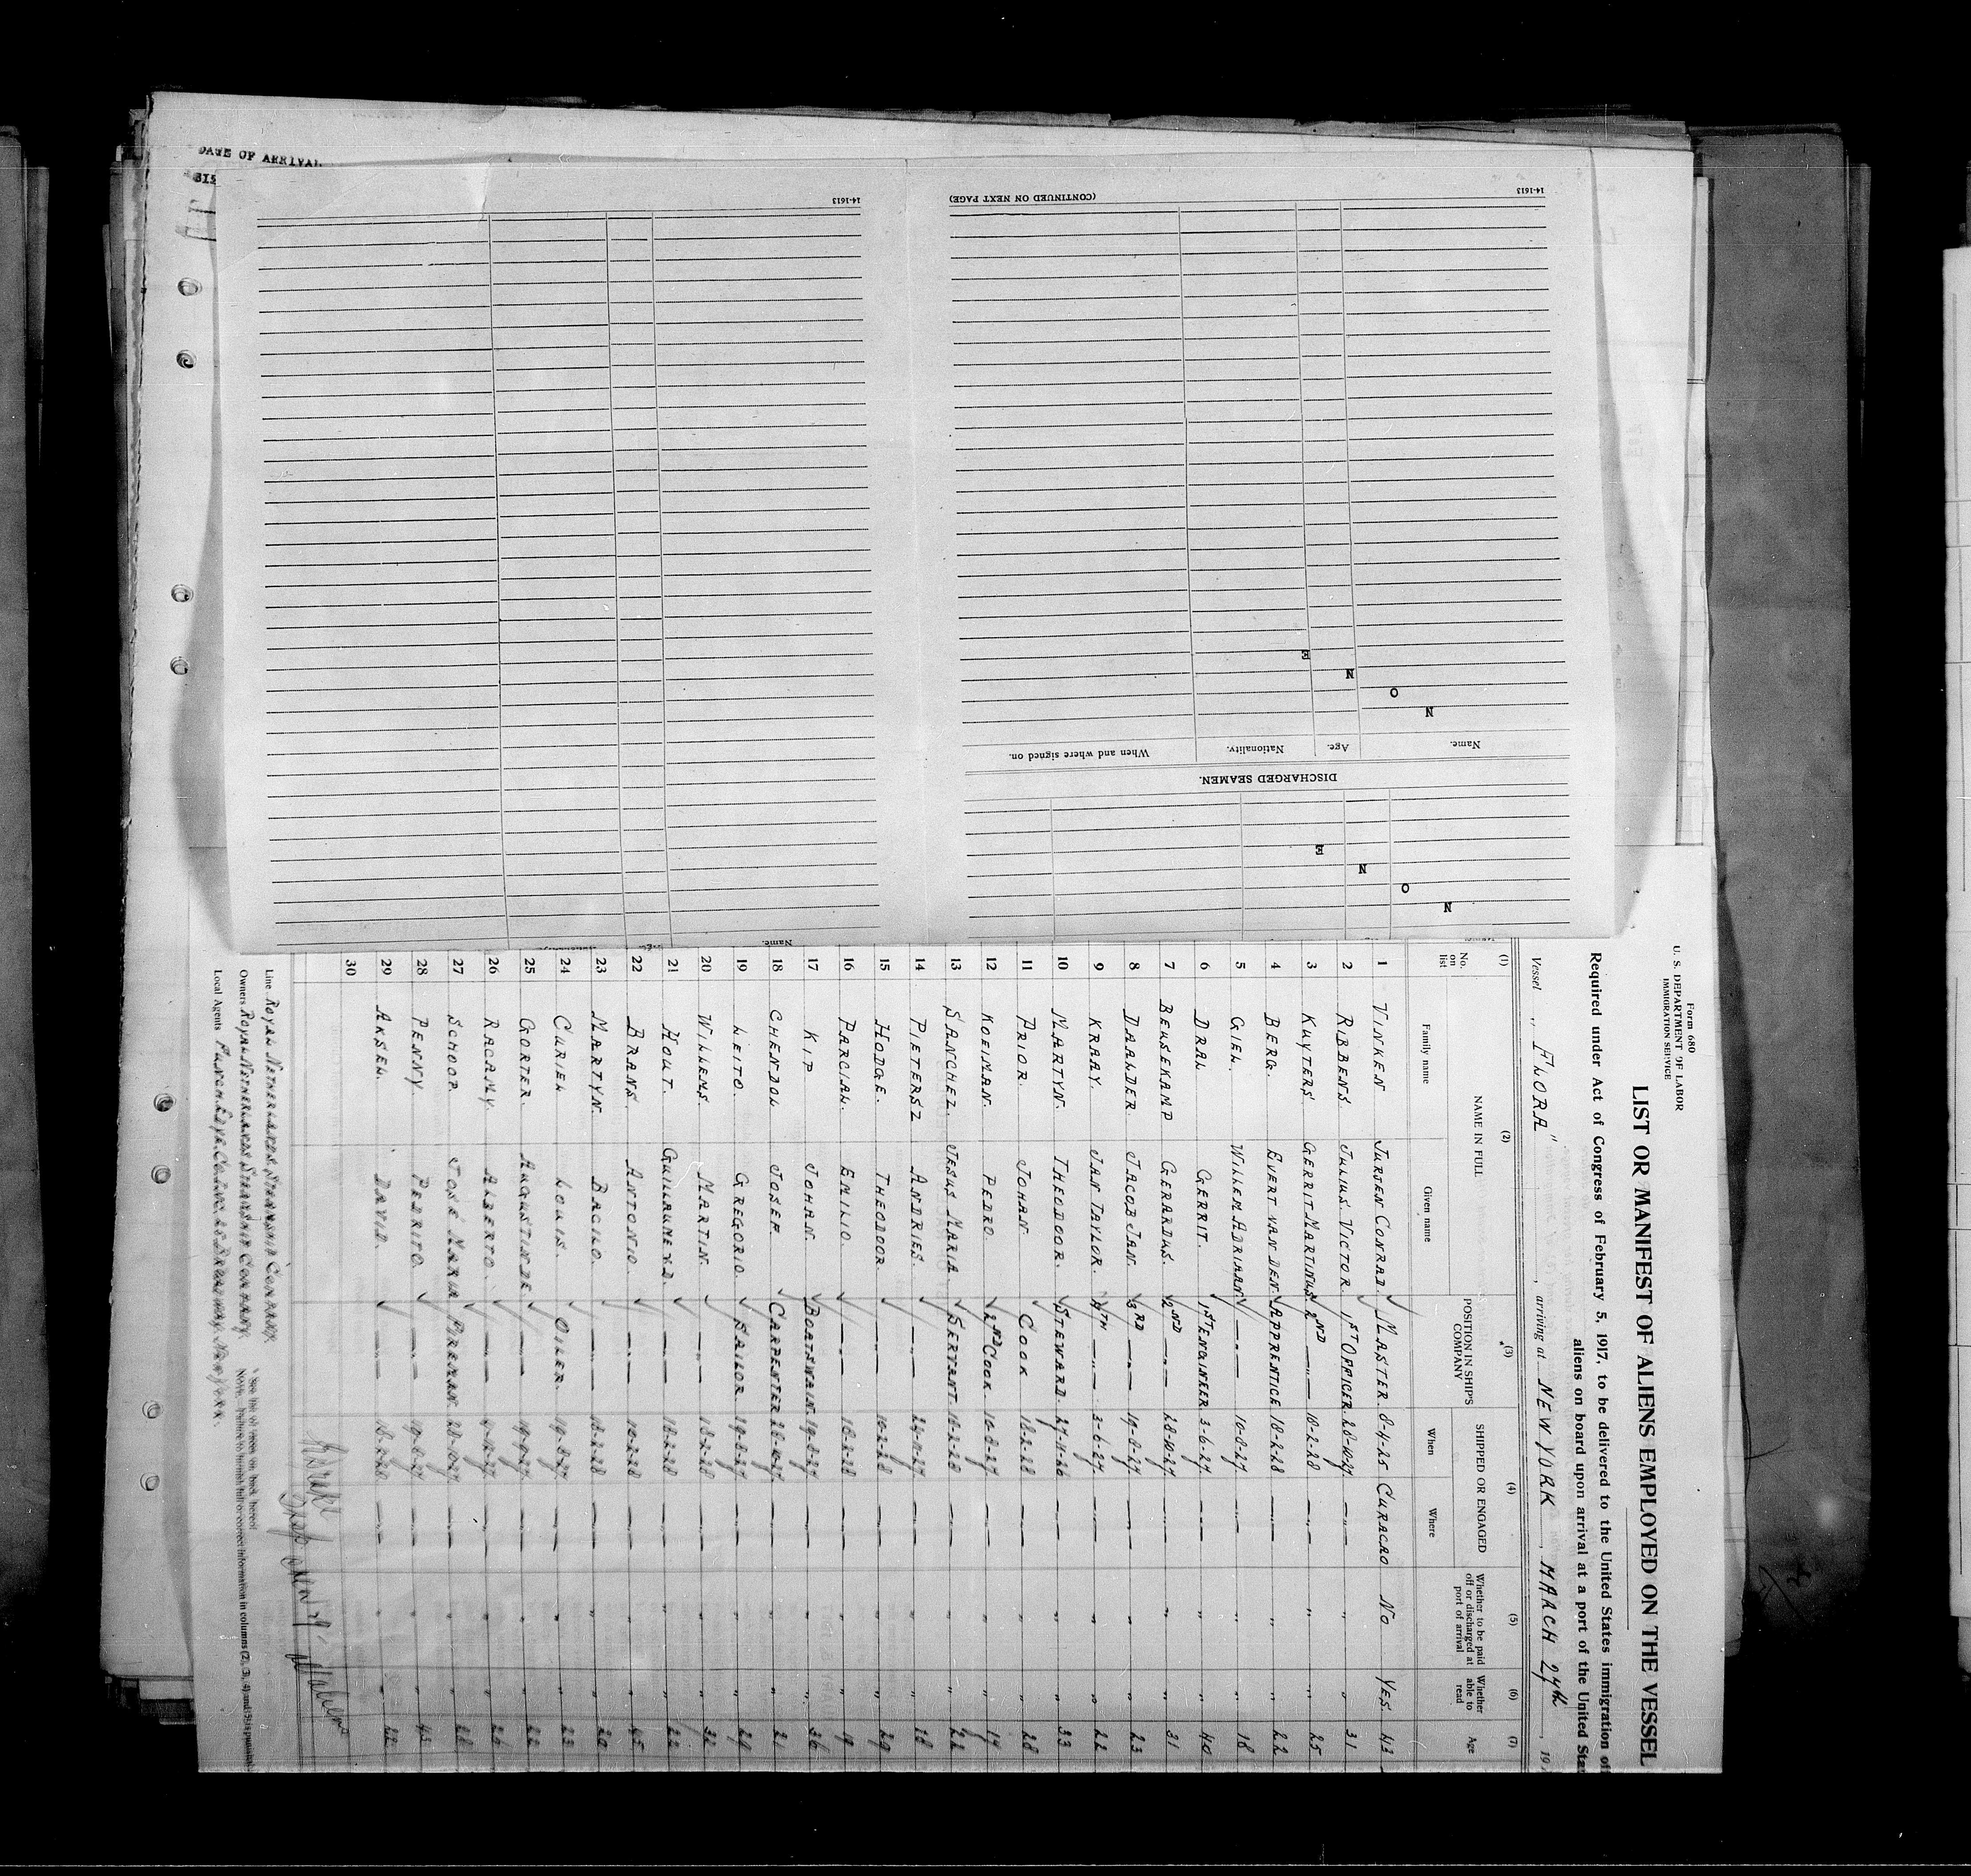 DATE OF ARRIVAL
14-1613
14-1613
(CONTINUED ON NEXT PAGE)
N
O
N
E
Name.
Age.
Nationality.
When and where signed on.
DISCHARGED SEAMEN.
N
O
N
E
Name.
Form 680
U. S. DEPARTMENT OF LABOR
IMMIGRATION SERVICE
LIST OR MANIFEST OF ALIENS EMPLOYED ON THE VESSEL
Required under Act of Congress of February 5, 1917, to be delivered to the United States immigration of
aliens on board upon arrival at a port of the United Sta
Vessel „ FLORA" , arriving at NEW YORK , MARCH 27th , 19
(1) (2) (3) (4) (5) (6) (7)
No. on list NAME IN FULL POSITION IN SHIP'S COMPANY SHIPPED OR ENGAGED Whether to be paid off or discharged at port of arrival Whether able to read Age
Family name Given name When Where
1 VINKEN JURJEN CONRAD. MASTER. 8-4-25 CURACAO NO YES. 43
2 RIBBENS. JULIUS. VICTOR. 1ST OFFICER. 28-10-27. —„— „ „ 31
3 KUYTERS. GERRIT MARTINUS. 2ND —„— 18-2-28 —„— „ „ 25
4 BERG. EVERT VAN DEN. APPRENTICE 18-2-28 —„— „ „ 22
5 GIEL. WILLEM ADRIAAN —„— 10-8-27 —„— „ „ 18
6 DRAL GERRIT. 1ST ENGINEER 3-6-27. —„— „ „ 40
7 BEUSEKAMP GERARDUS. 2ND —„— 28-10-27. —„— „ „ 31
8 DAALDER JACOB JAN. 3RD —„— 19-8-27. —„— „ „ 23
9 KRAAY. JAN TAYLOR. 4TH —„— 3-6-27. —„— „ „ 22
10 MARTYN. THEODOOR. STEWARD. 27-11-26 —„— „ „ 33
11 PRIOR. JOHAN. COOK 18-2-28 —„— „ „ 28
12 KOEIMAN. PEDRO. 2ND COOK 10-8-27. —„— „ „ 17
13 SANCHEZ. JESUS MARIA. SERVANT. 18-2-28 —„— „ „ 22
14 PIETERSZ ANDRIES. —„— 24-11-27 —„— „ „ 18
15 HODGE. THEODOOR. —„— 18-2-28 —„— „ „ 29
16 PARCIAL. EMILIO. —„— 18-2-28 —„— „ „ 19
17 KIP JOHAN. BOATSWAIN. 19-8-27 —„— „ „ 36
18 CHENDOL JOSEP. CARPENTER 28-10-27 —„— „ „ 21
19 LEITO. GREGORIO. SAILOR. 19-8-27 —„— „ „ 29
20 WILLEMS. MARTIN. —„— 18-2-28 —„— „ „ 32
21 HOUT. GUILAUME V.D. —„— 18-2-28 —„— „ „ 22
22 BRANS. ANTONIO. —„— 18-2-28 —„— „ „ 45
23 MARTYN. BACILO. —„— 18-2-28 —„— „ „ 20
24 CURIEL LOUIS. OILER. 19-8-27. —„— „ „ 23
25 GORTER. AUGUSTIN DE. —„— 19-9-27. —„— „ „ 22
26 RACAMY. ALBERTO. —„— —„— „ „ 26
27 SCHOOP. JOSÉ MARIA FIREMAN. 28-10-27 —„— „ „ 28
28 PENNY. PEDRITO. —„— 19-8-27 —„— „ „ 43
29 ANSEL. DAVID. —„— 18-2-28 —„— „ „ 22
30
Line ROYAL NETHERLANDS STEAMSHIP COMPANY.
Owners ROYAL NETHERLANDS STEAMSHIP COMPANY.
Local Agents FUNCH, EDYE, CO. INC. 25 BROADWAY. NEW YORK.